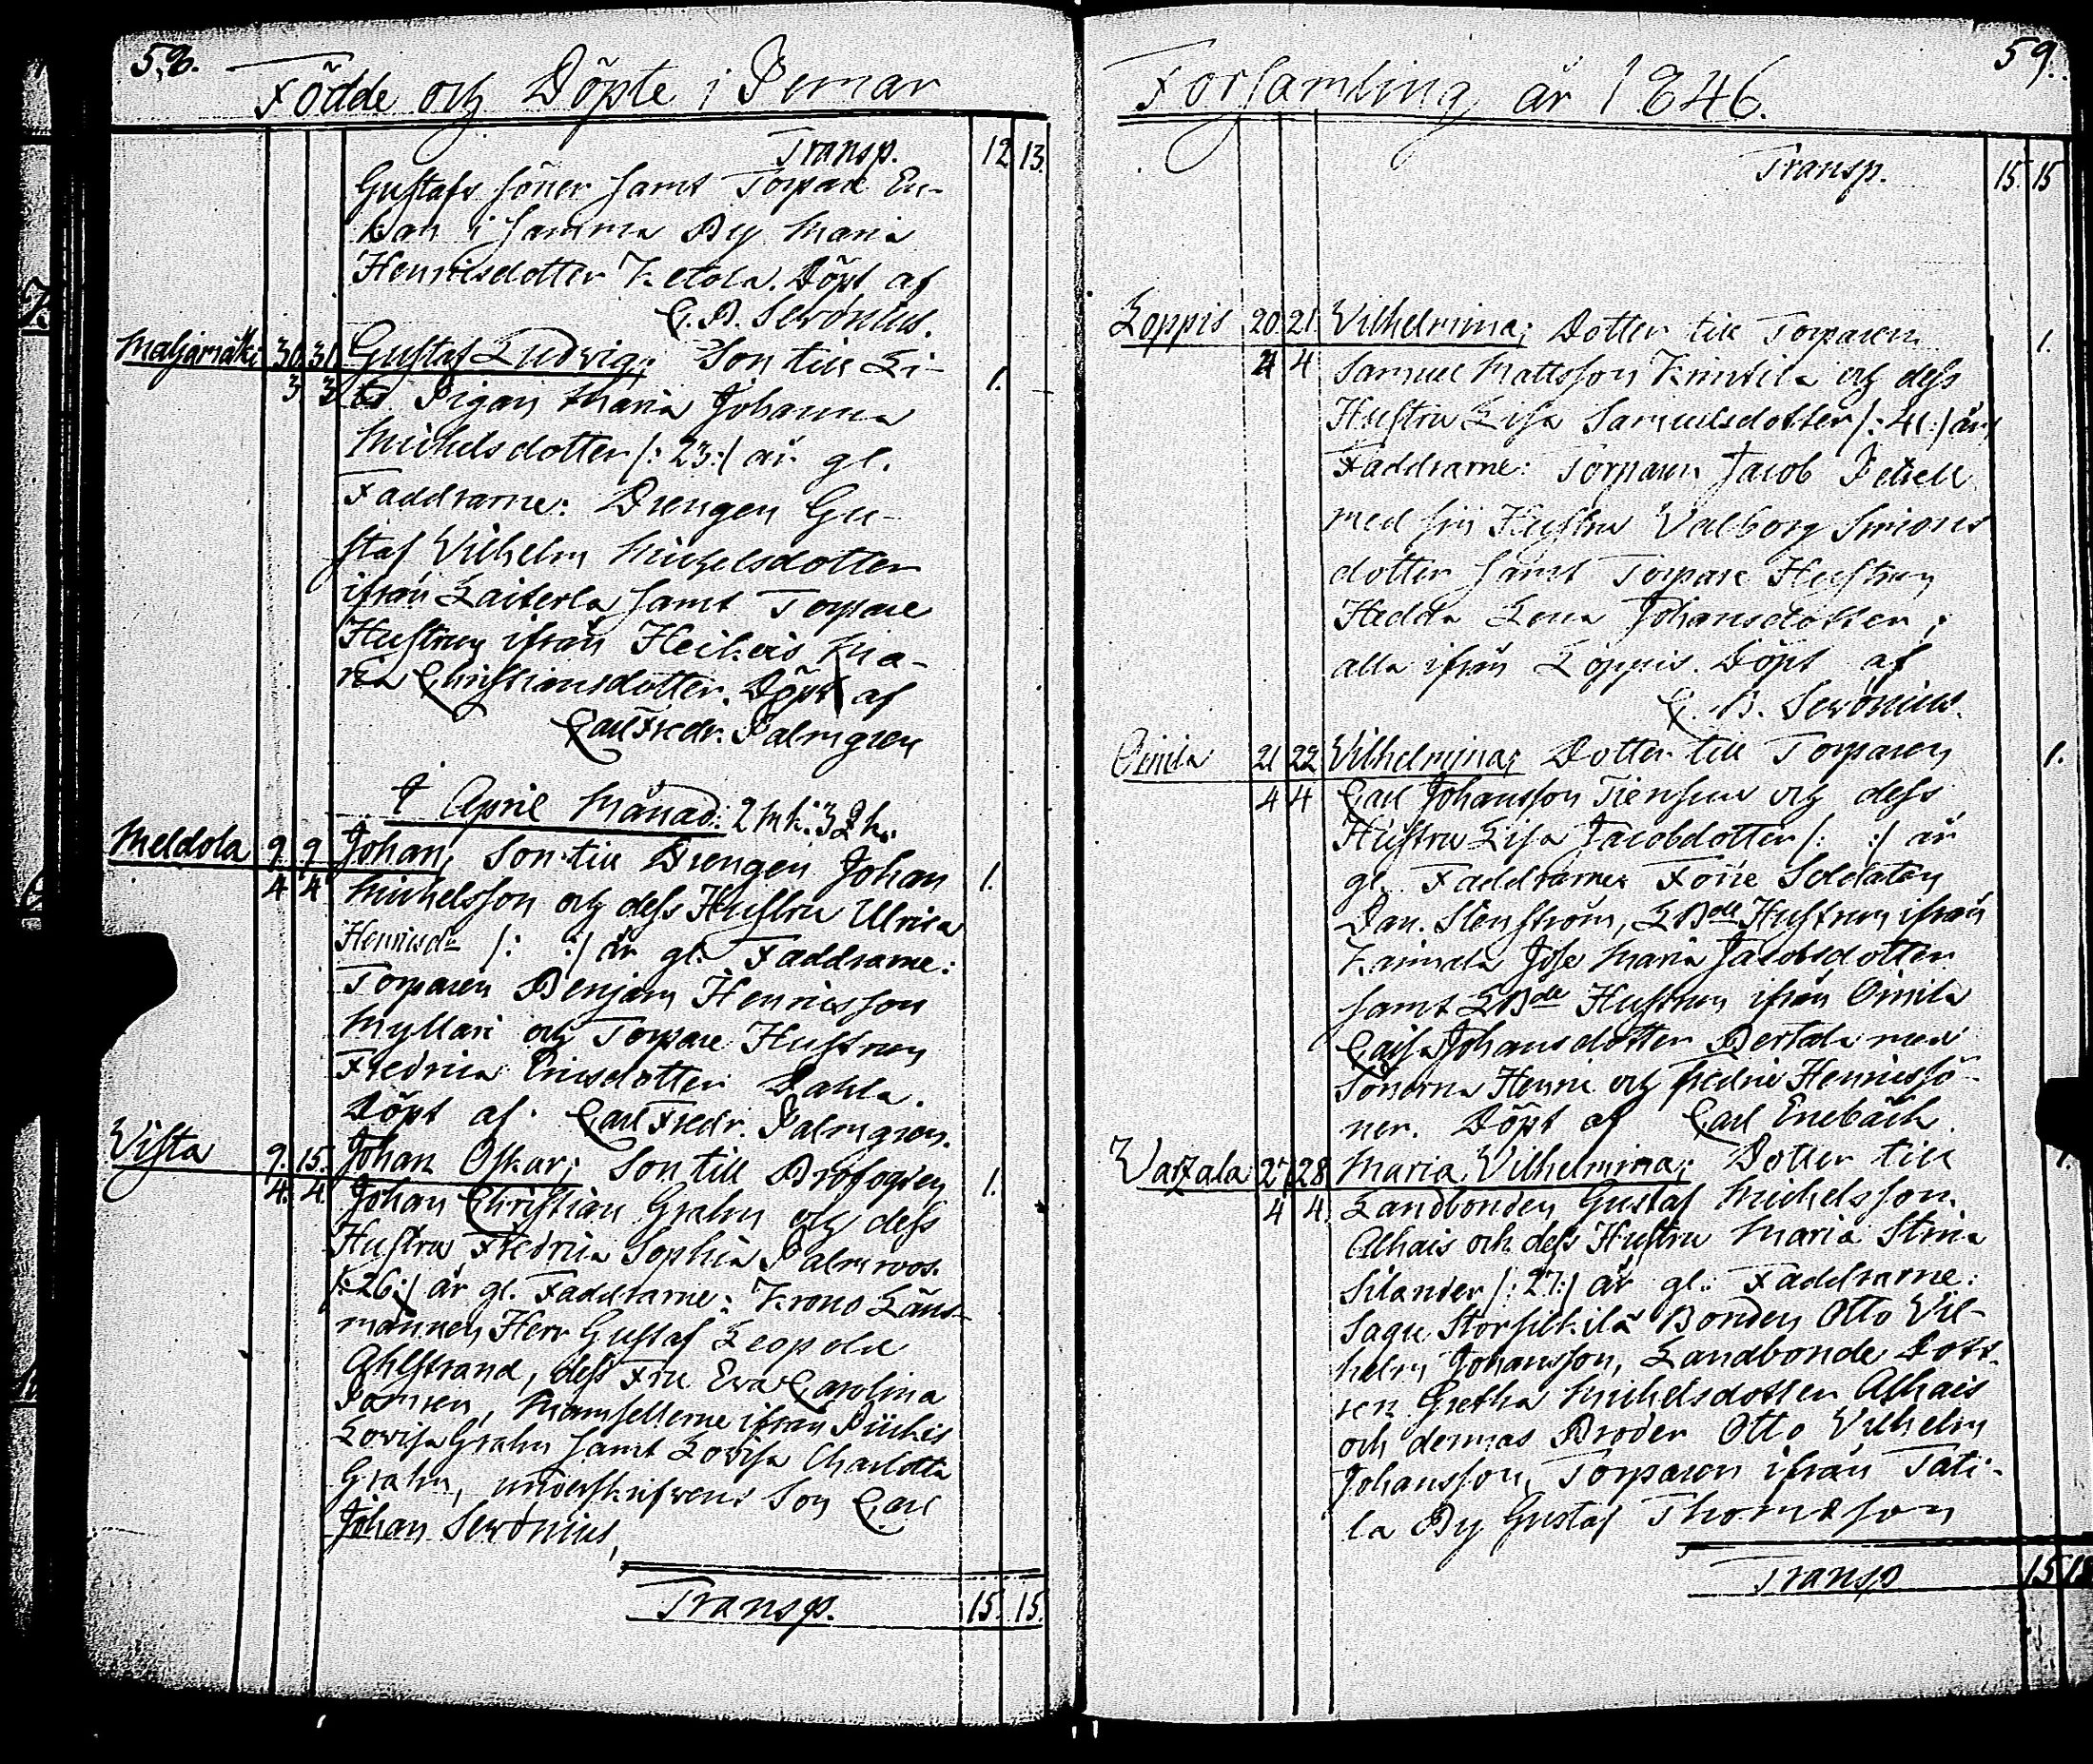 58.
Födde och Döpte i Pemar
Transp. 12 13.
Gustafs söner samt Torpare En-
kan i samma By Maria
Henricsdotter Ketola. Döpt af
C. B. Serónius.
Maljamäki 30 31 Gustaf Ludvig; Son till
3 3 Pigan Maria Johanna 1.
Michelsdotter /: 23 :/ år gl.
Faddrarne: Drengen Gu-
staf Vilhelm Michelsdotter
ifrån Kaiterla samt Torpare
Hustrun ifrån Heikeis Ma-
ria Christiansdotter. Döpt af
Carl Fredr. Palmgren
I April Månad:
Meldola 9 9 Johan, Son till Drengen Johan 1.
4 4 Michelsson och dess Hustru Ulrica
Henricsdr /: :/ år gl: Faddrarne:
Torparen Benjam Henricsson
Myllari och Torpare Hustrun
Fredrica Ericsdotter Dahla.
Döpt af Carl Fredr. Palmgren.
Vista 9. 15. Johan Oskar; Son till Profogden 1.
4. 4 Johan Christian Grahn och dess
Hustru Fredrica Sophia Palmroos.
/: 26 :/ år gl. Faddrarne: Krono Läns-
mannen Herr Gustaf Leopold
Ahlstrand, dess Fru Eva Carolina
Mamsellerne ifrån Piikis
Lovisa Grahn samt Lovisa Charlotta
Grahn, underskrifvens Son Carl
Johan Serónius,
Transp. 15. 15.
59.
Forsamling år 1846.
Transp. 15. 15
Loppis 20. 21. Vilhelmina; Dotter till Torparen 1.
4 4 Samuel Mattsson Kimtila och dess
Hustru Lisa Samuelsdotter /: 41 :/ år
Faddrarne: Torparen Jacob Petrell
med sin Hustru Valborg Simons
dotter samt Torpare Hustrun
Hedda Lena Johansdotter;
alla ifrån Loppis. Döpt af
C. B. Serónius.
Oinila 21 22 Vilhelmina; Dotter till Torparen 1.
4 4 Carl Johansson Tiensuu och dess
Hustru Lisa Jacobdotter /: :/ år
gl. Faddrarne: Förre Soldaten
Dan. Stenström, LBde Hustrun ifrån
Kaimala Maria Jacobsdotter
samt LBde Hustrun ifrån Oinila
Caisa Johansdotter Bertala med
Sönerna Henric och Fredric Henricsö-
ner. Döpt af Carl Enebäck.
Varzala 27 28 Maria Vilhelmina; Dotter till 1.
4 4. Landbonden Gustaf Michelsson
Alhais och dess Hustru Maria Stina
Silander /: 27 :/ år gl: Faddrarne:
Sagu Storsilkilä Bonden Otto Vil-
helm Johansson, Landbonde Dott-
ren Gretha Michelsdotter Alhais
och dennas Broder Otto Vilhelm
Johansson, Torparen ifrån Tati-
la By Gustaf Thomasson
Transp 15